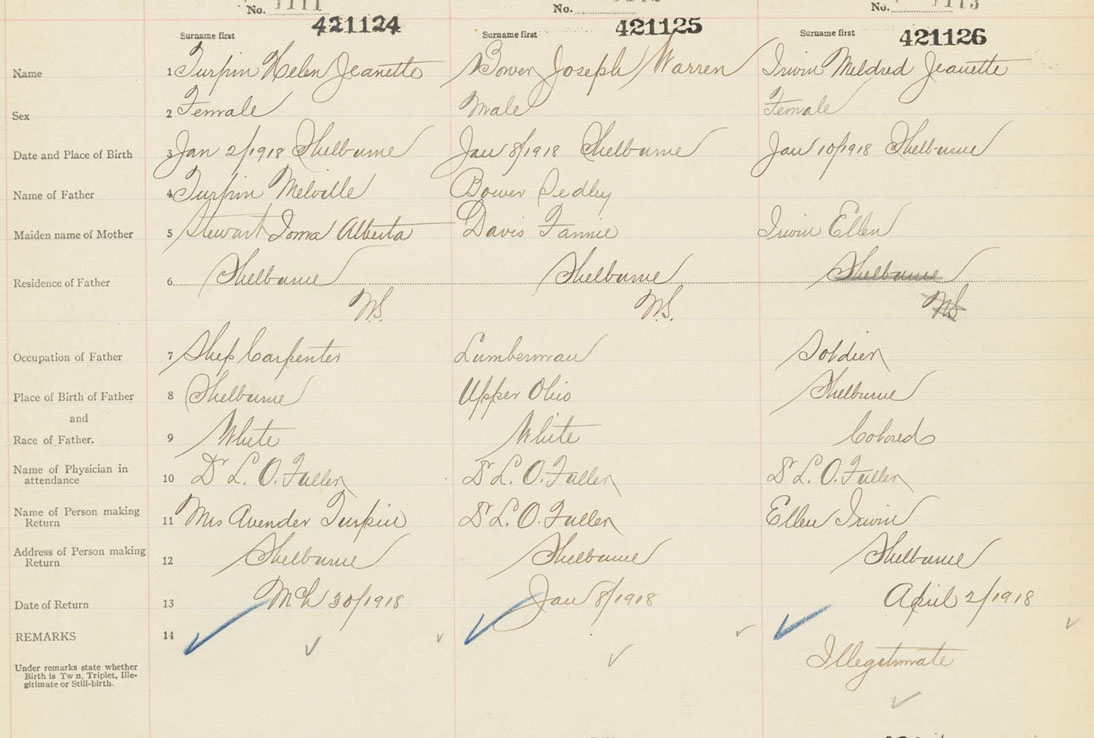 No. 7171 No. No. 7173
421124 421125 421126
Surname first Surname first Surname first
Name 1 Turpin Helen Jeanette Bower Joseph Warren Irwin Mildred Jeanette
Sex 2 Female Male Female
Date and Place of Birth 3 Jan 2/1918 Shelburne Jan 8/1918 Shelburne Jan 10/1918 Shelburne
Name of Father 4 Turpin Melville Bower Sedley
Maiden name of Mother 5 Stewart Ioma Alberta Davis Fannie Irwin Ellen
Residence of Father 6 Shelburne Shelburne Shelburne
N.S. N.S. NS
Occupation of Father 7 Ship Carpenter Lumberman Soldier
Place of Birth of Father 8 Shelburne Upper Ohio Shelburne
and
Race of Father. 9 White White Colored
Name of Physician in
attendance 10 Dr L. O. Fuller Dr L. O. Fuller Dr L. O. Fuller
Name of Person making
Return 11 Mrs Avender Turpin Dr L. O. Fuller Ellen Irwin
Address of Person making
Return 12 Shelburne Shelburne Shelburne
Date of Return 13 Mch 30/1918 Jan 8/1918 April 2/1918
REMARKS 14
Illegitimate
Under remarks state whether
Birth is Tw n, Triplet, Ille-
gitimate or Still-birth.